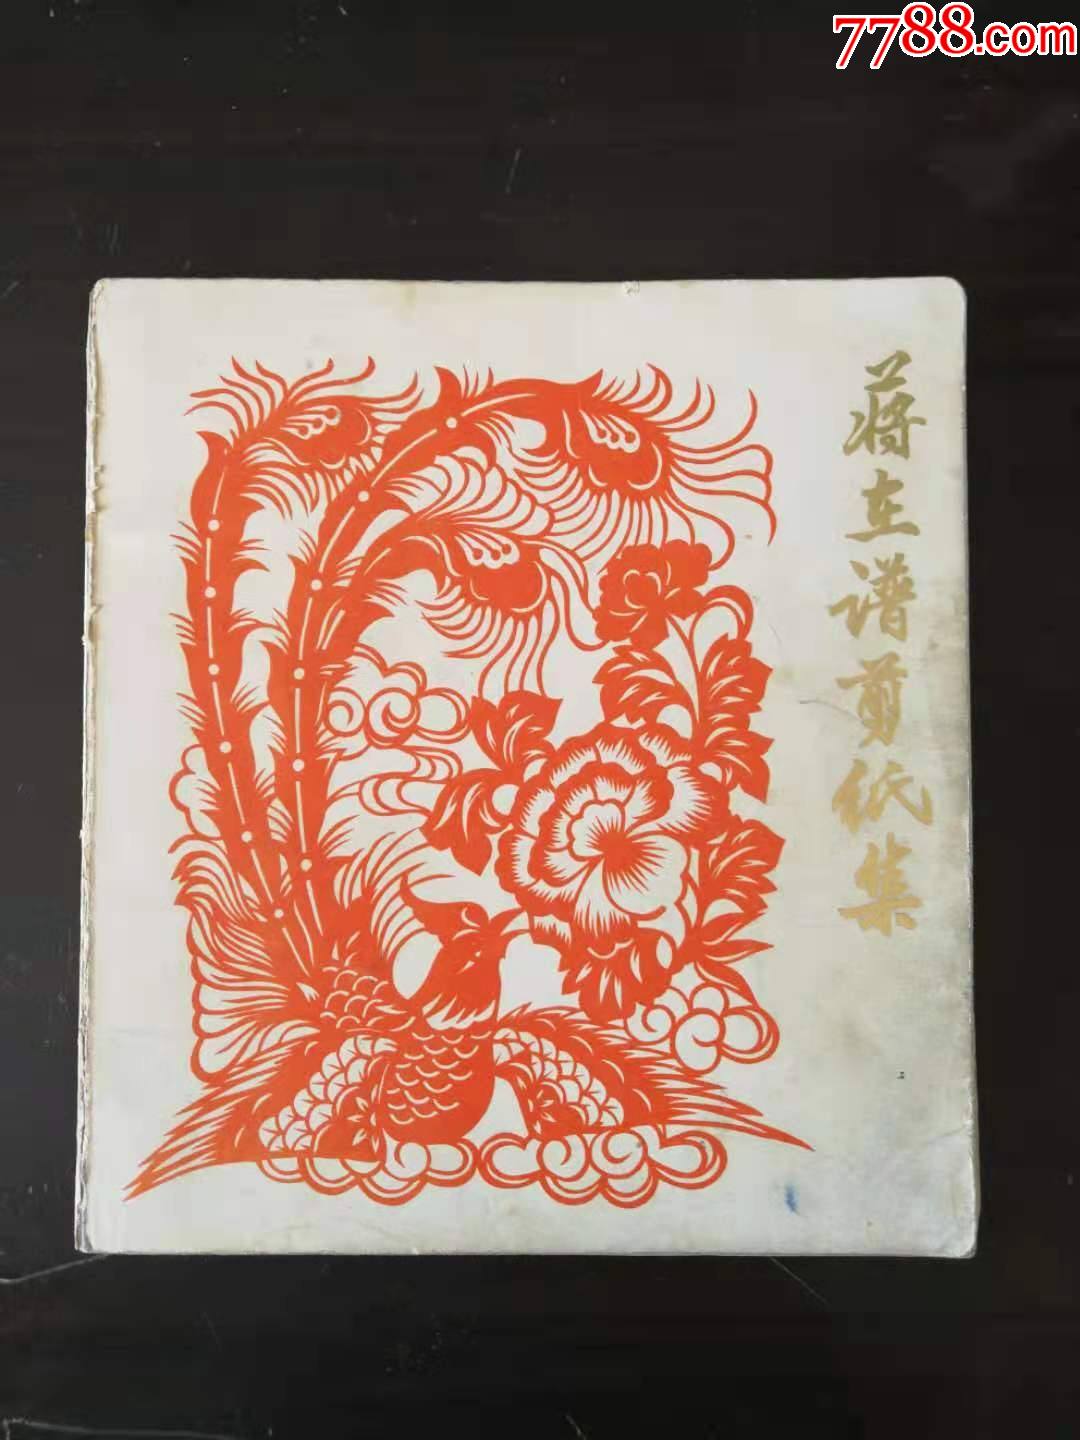 7788.com
蒋在谱剪纸集